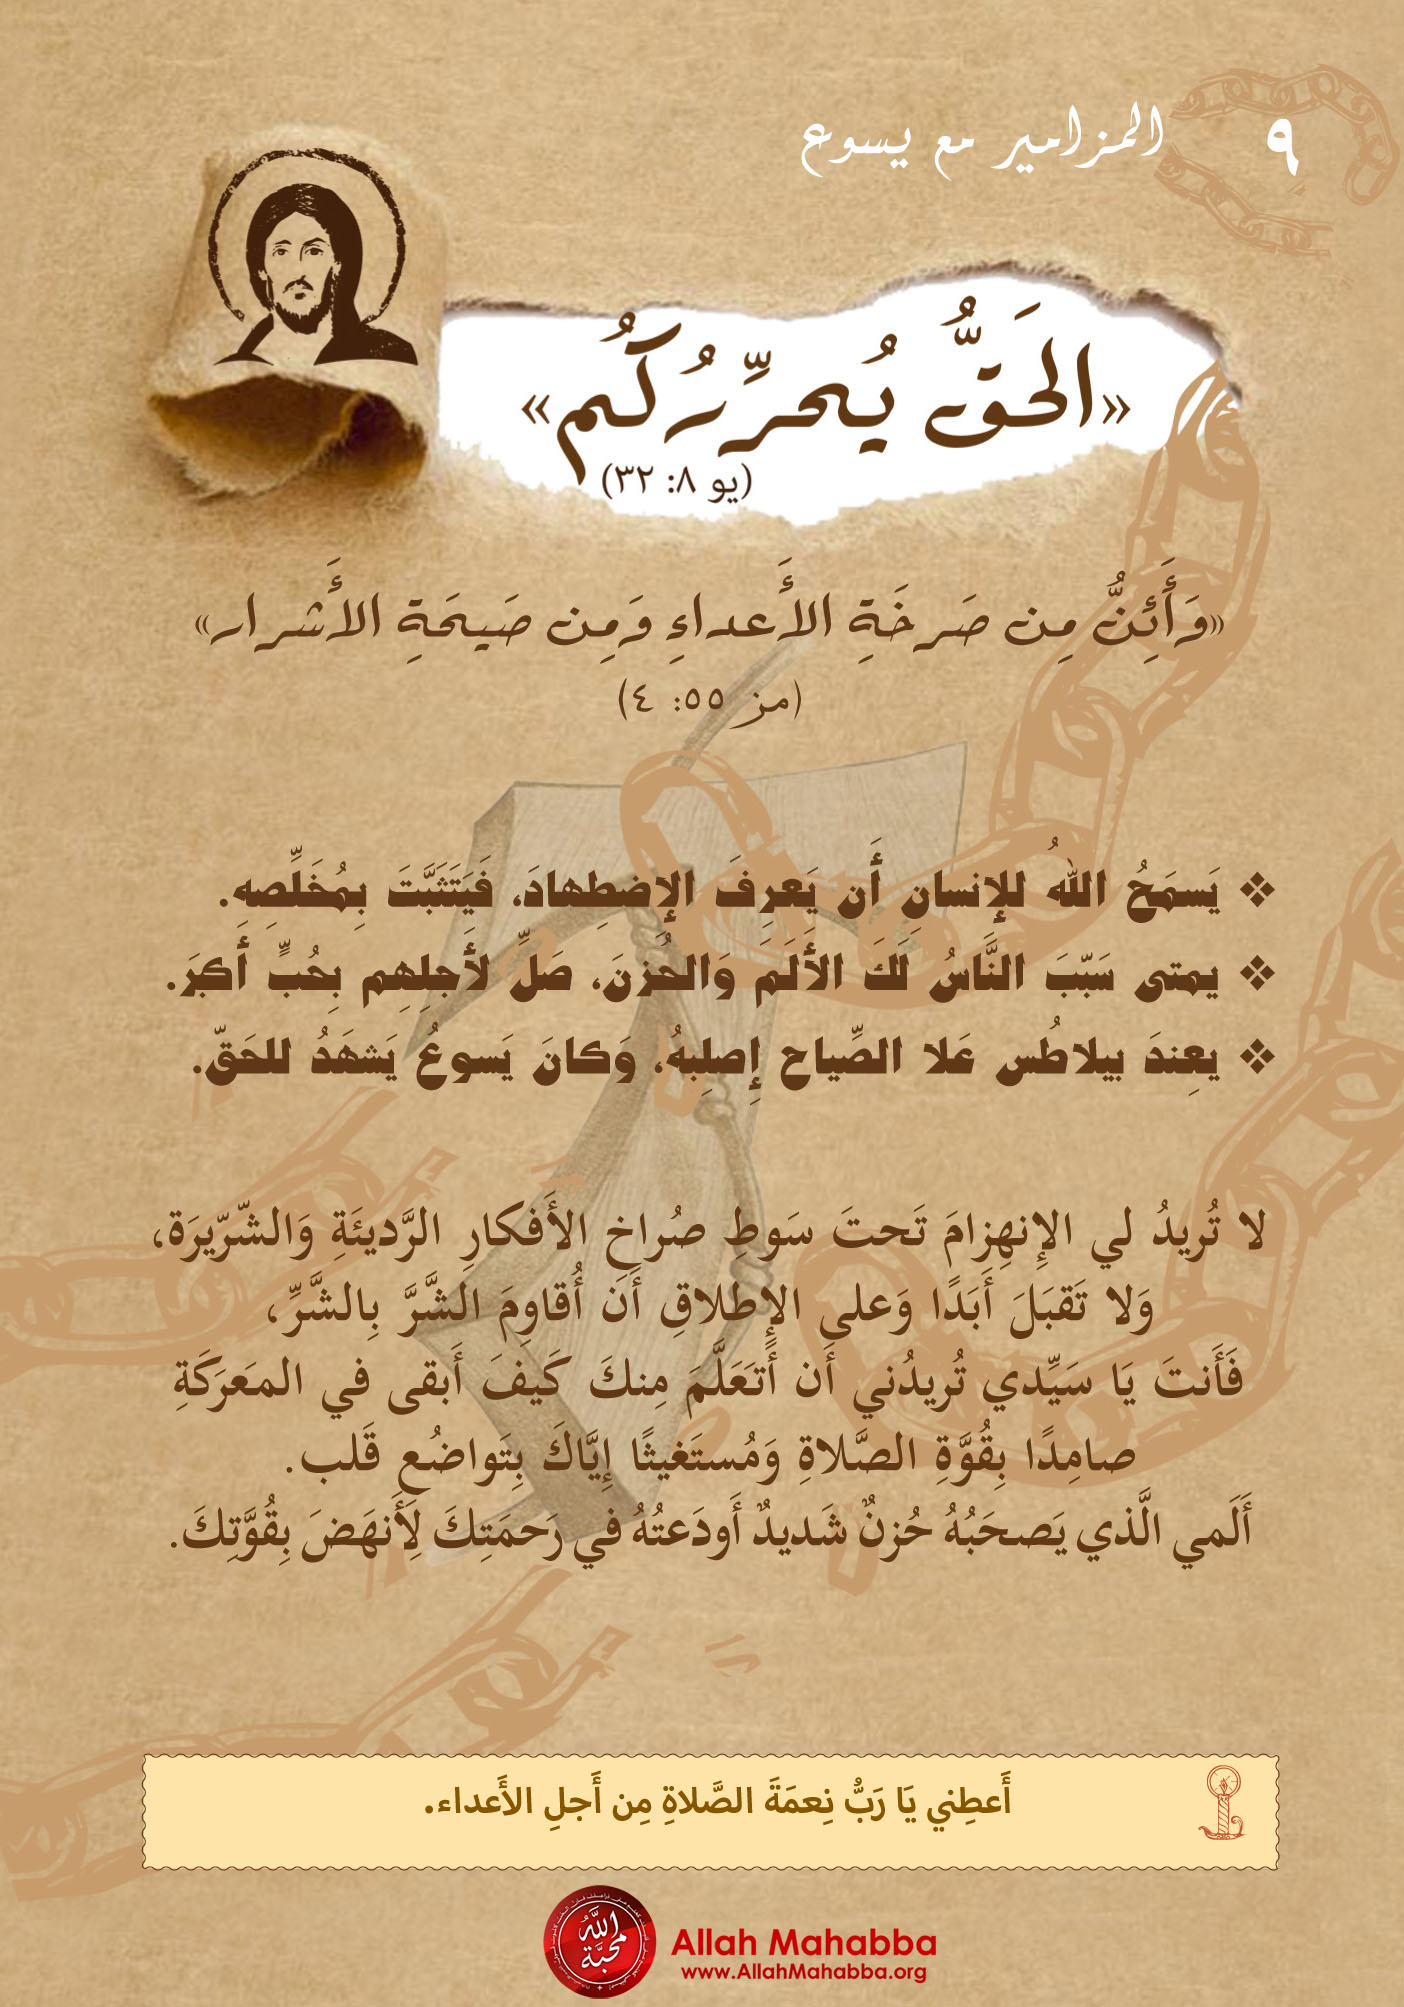 ٩
المزامير مع يسوع
«الحَقُّ يُحرِّرُكُم»
(يو ٨: ٣٢)
«وَأَئِنُّ مِن صَرخَةِ الأَعداءِ وَمِن صَيحَةِ الأَشرار»
(مز ٥٥: ٤)
❖ يَسمَحُ اللهُ للإنسانِ أَن يَعرِفَ الإضطِهادَ، فَيَتَثَبَّتَ بِمُخَلِّصِهِ.
❖ يمتى سَبّبَ النَّاسُ لَكَ الأَلَمَ وَالحُزنَ، صَلِّ لأَجلِهِم بِحُبٍّ أَكبَرَ.
❖ يعِندَ بيلاطُس عَلا الصِّياح إِصلِبهُ، وَكانَ يَسوعُ يَشهَدُ للحَقّ.
لا تُريدُ لي الإنهِزامَ تَحتَ سَوطِ صُراخِ الأَفكارِ الرَّديئَةِ وَالشّرّيرَة،
وَلا تَقبَلَ أَبَدًا وَعلى الإطلاقِ أَن أُقاوِمَ الشَّرَّ بِالشَّرِّ،
فَأَنتَ يَا سَيِّدي تُريدُني أَن أَتَعَلَّمَ مِنكَ كَيفَ أَبقى في المَعرَكَةِ
صامِدًا بِقُوَّةِ الصَّلاةِ وَمُستَغيثًا إِيَّاكَ بِتَواضُعِ قَلب.
أَلَمي الَّذي يَصحَبُهُ حُزنٌ شَديدٌ أَودَعتُهُ في رَحمَتِكَ لِأَنهَضَ بِقُوَّتِكَ.
أَعطِني يَا رَبُّ نِعمَةَ الصَّلاةِ مِن أَجلِ الأَعداء.
الله محبَّة
Allah Mahabba
www.AllahMahabba.org